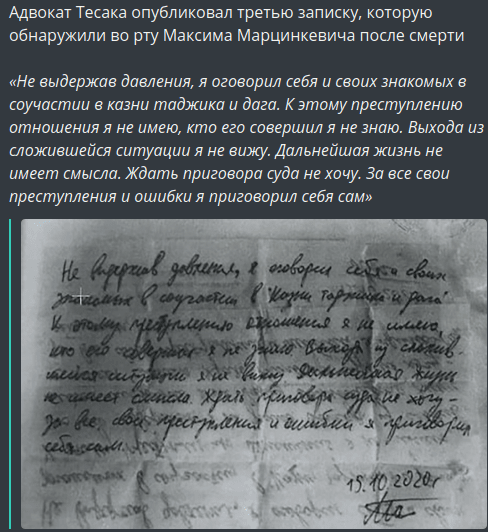 Адвокат Тесака опубликовал третью записку, которую
обнаружили во рту Максима Марцинкевича после смерти
«Не выдержав давления, я оговорил себя и своих знакомых в
соучастии в казни таджика и дага. К этому преступлению
отношения я не имею, кто его совершил я не знаю. Выхода из
сложившейся ситуации я не вижу. Дальнейшая жизнь не
имеет смысла. Ждать приговора суда не хочу. За все свои
преступления и ошибки я приговорил себя сам»
Не выдержав давления, я оговорил себя и своих
знакомых в соучастии в "Казни таджика и дага"
К этому преступлению отношения я не имею,
кто его совершил я не знаю. Выход из сложив-
шейся ситуации я не вижу. Дальнейшая жизнь
не имеет смысла. Ждать приговора суда не хочу -
за все свои преступления и ошибки я приговорил
себя сам.
15.10.2020г